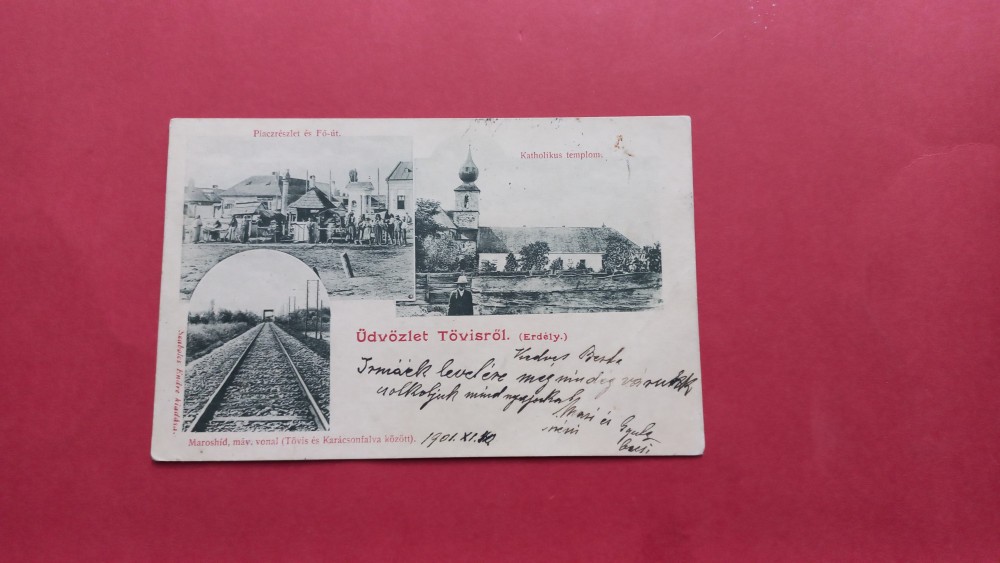 Piaczrészlet és Fő-út.
Katholikus templom.
Üdvözlet Tövisről. (Erdély.)
Kedves Berta
Irmáék levelére meg mindég várunk
csolkoljuk mindnyájukat
Mari és
néni
Gyula
Maroshíd, máv. vonal (Tövis és Karácsonfalva között).
1901.XI.10
Endre kiadása.